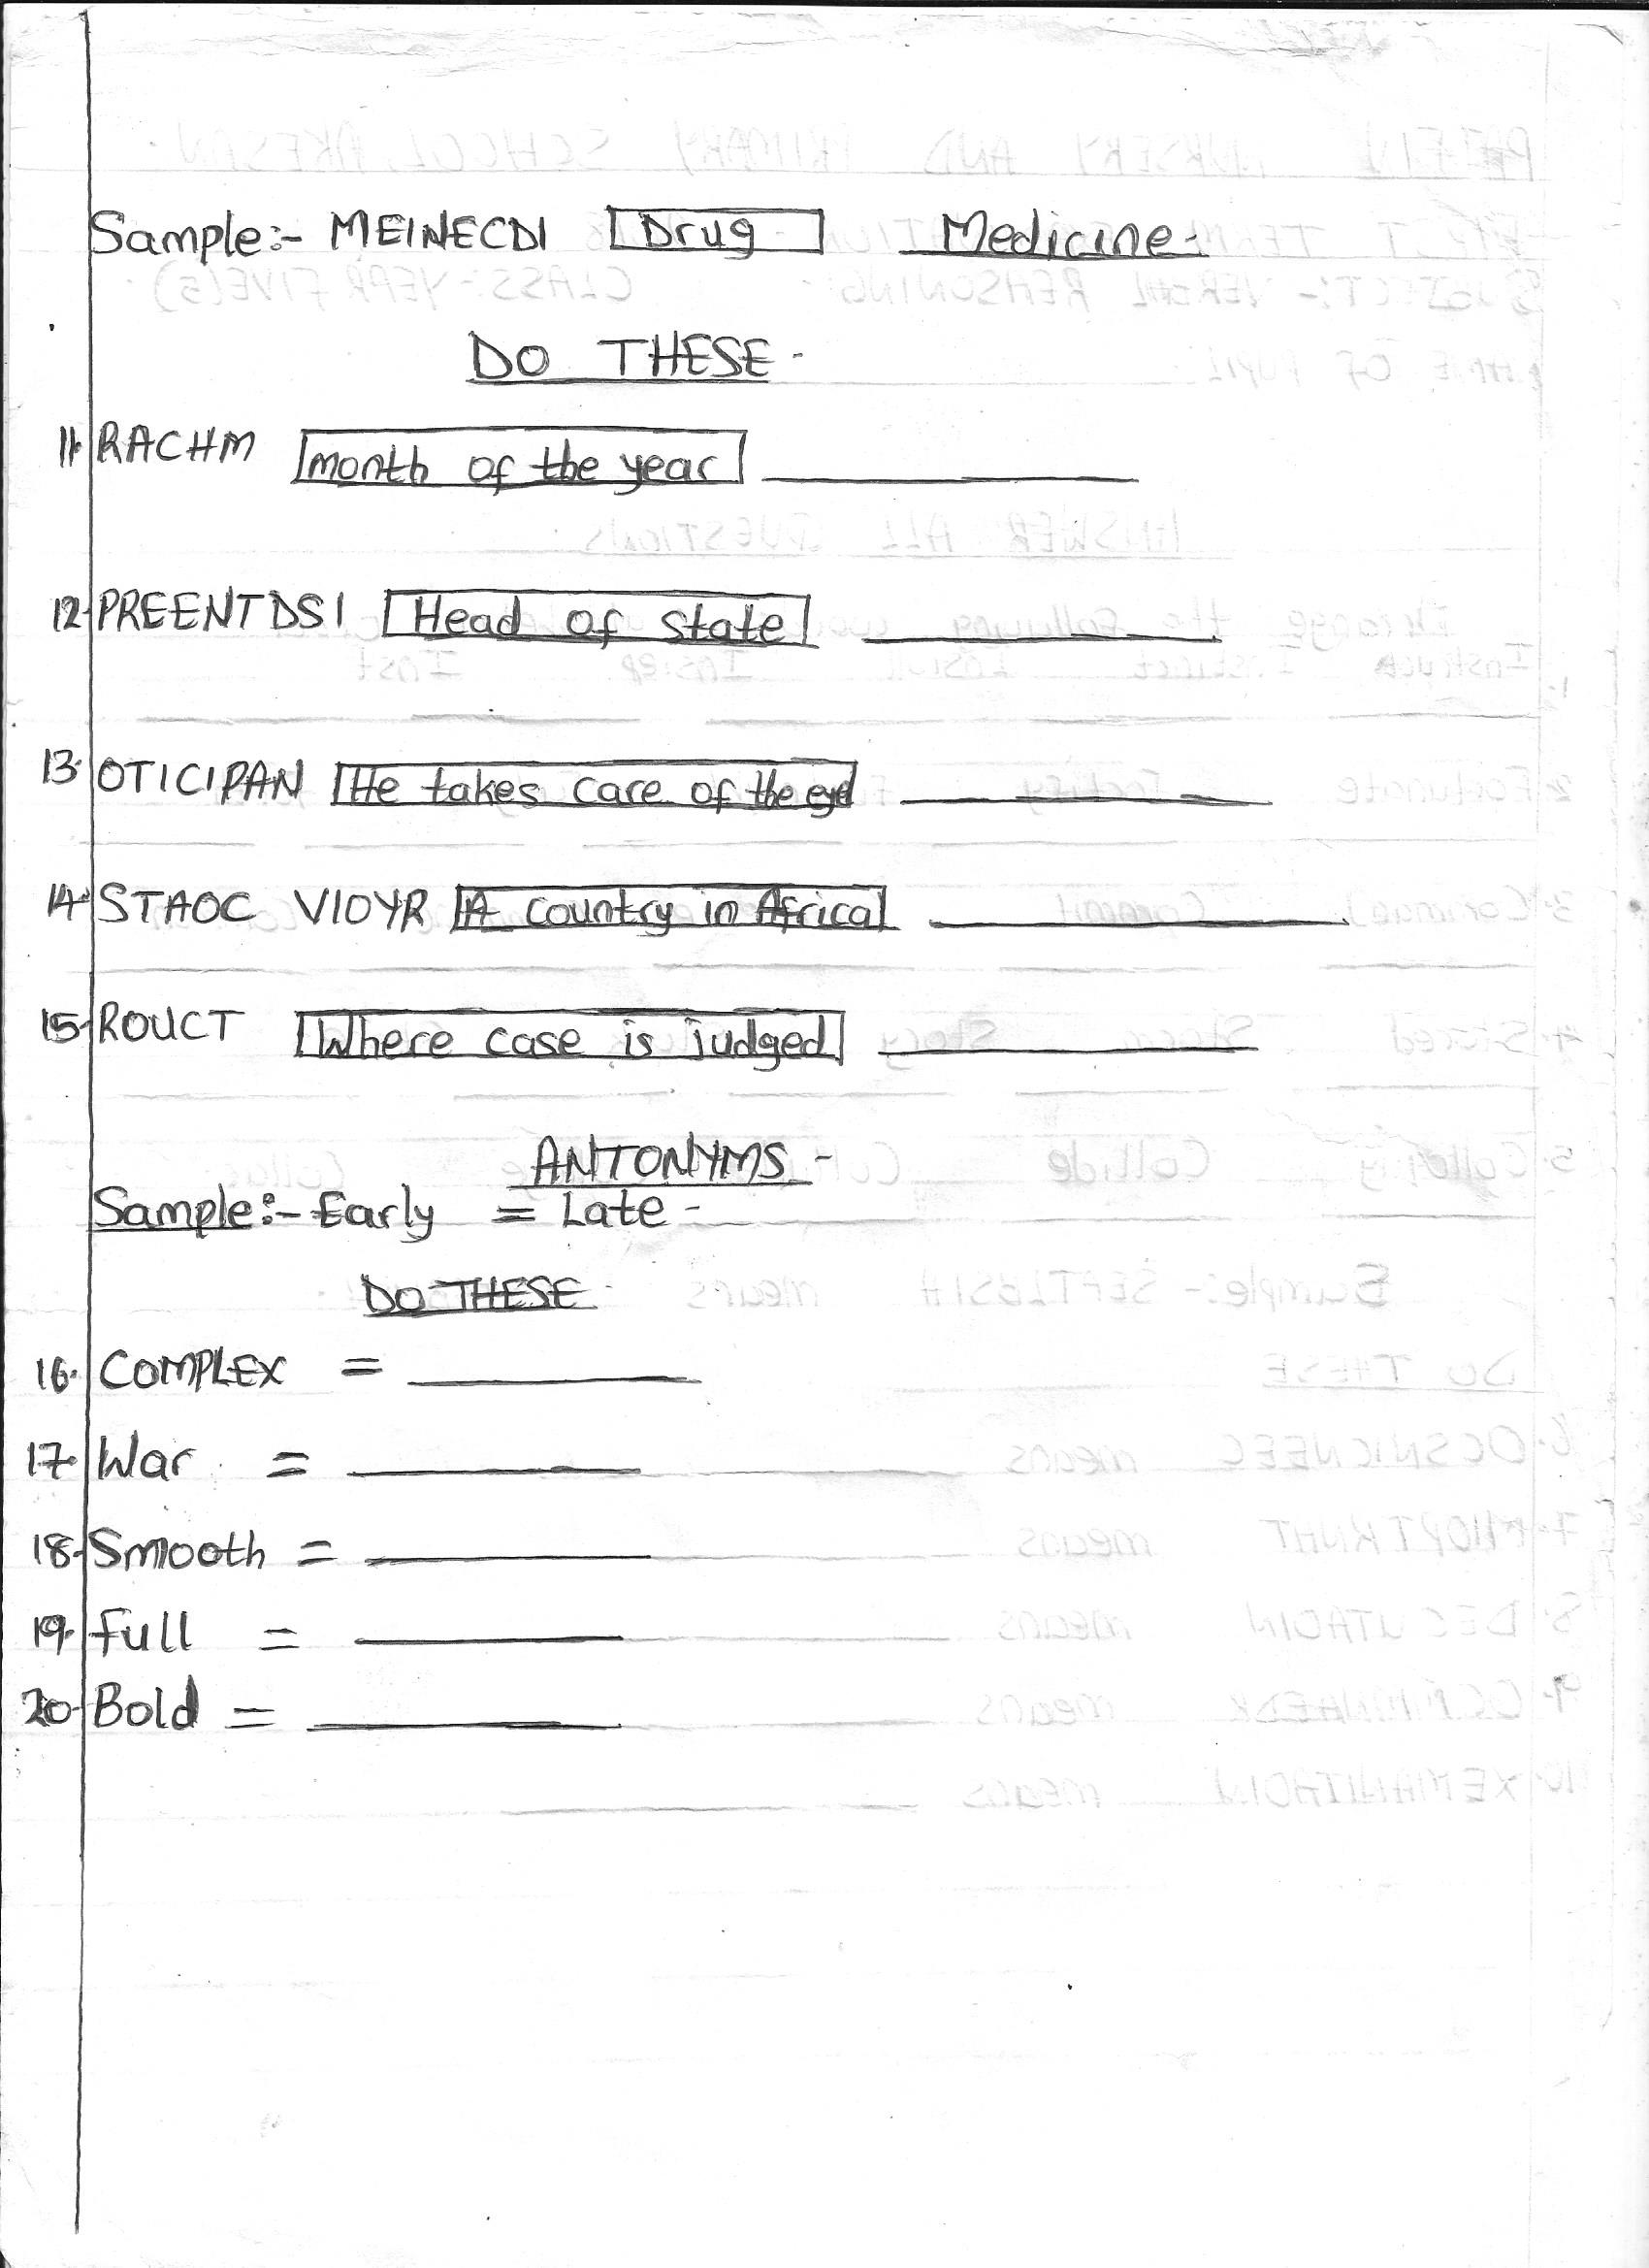 Sample:- MEINECDI Drug Medicine-
DO THESE-
11. RACHM month of the year
12. PREENTDSI Head of state
13. OTICIPAN He takes care of the eye
14. STAOC VIOYR A country in Africa
15. ROUCT Where case is judged
ANTONYMS-
Sample:- Early = Late-
DO THESE
16. COMPLEX =
17. War =
18. Smooth =
19. Full =
20. Bold =